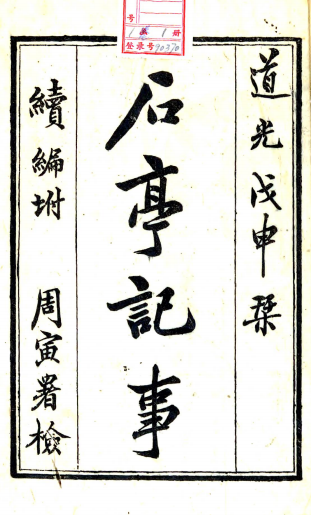 道光戊申栞
石亭記事
續編坿 周寅署檢
号
1 册 1 册
登录号 90370